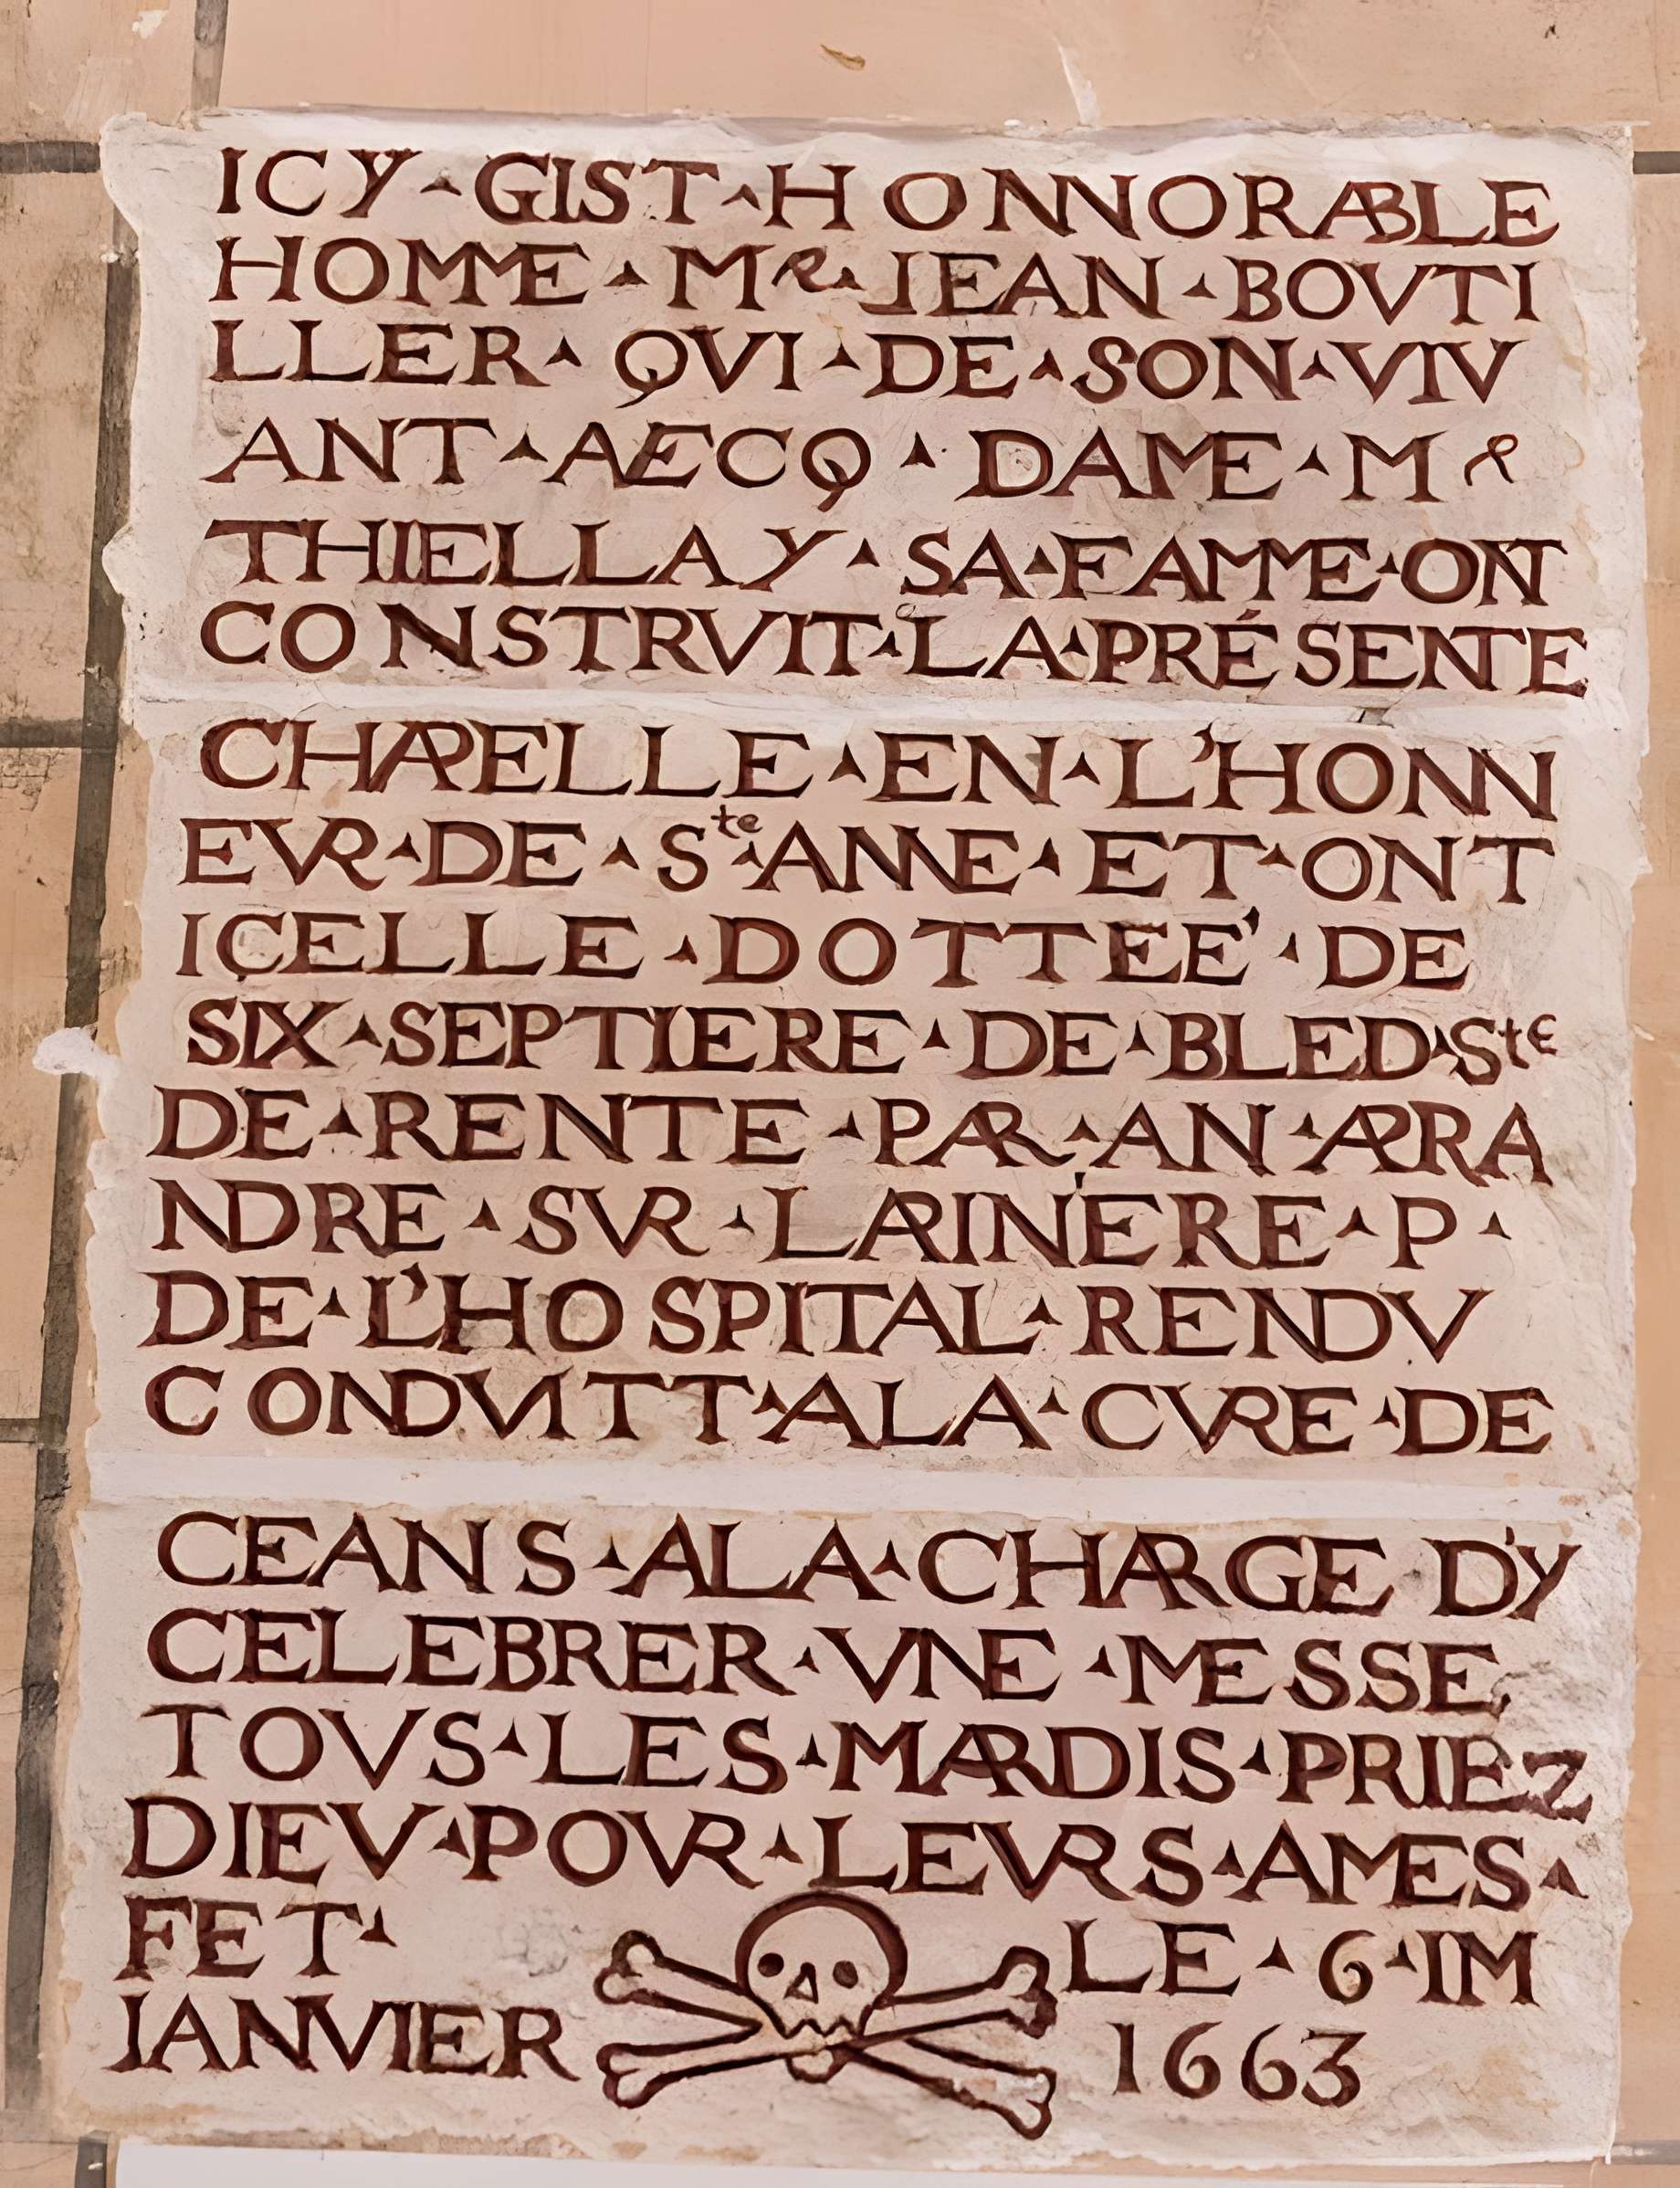 ICY ▴ GIST ▴ HONNORABLE
HOMME ▴ MR ▴ JEAN ▴ BOVTI
LLER ▴ QVI ▴ DE ▴ SON ▴ VIV
ANT ▴ AECQ ▴ DAME ▴ MR
THIELLAY ▴ SA ▴ FAMME ▴ ONT
CONSTRVIT ▴ LA ▴ PRÉSENTE
CHAPELLE ▴ EN ▴ L'HONN
EVR ▴ DE ▴ Ste ▴ ANNE ▴ ET ▴ ONT
IÇELLE ▴ DOTTEE' ▴ DE
SIX ▴ SEPTIERE ▴ DE ▴ BLED ▴ Ste
DE ▴ RENTE ▴ PAR ▴ AN ▴ APRA
NDRE ▴ SVR ▴ LARINÉRE ▴ P ▴
DE ▴ L'HOSPITAL ▴ RENDV
CONDVITT ▴ ALA ▴ CVRE ▴ DE
CEANS ▴ ALA ▴ CHARGE D'Y
CELEBRER ▴ VNE ▴ MESSE
TOVS ▴ LES ▴ MARDIS ▴ PRIEZ
DIEV ▴ POVR ▴ LEVRS ▴ AMES ▴
FET ▴ LE ▴ 6 ▴ IM
IANVIER 1663